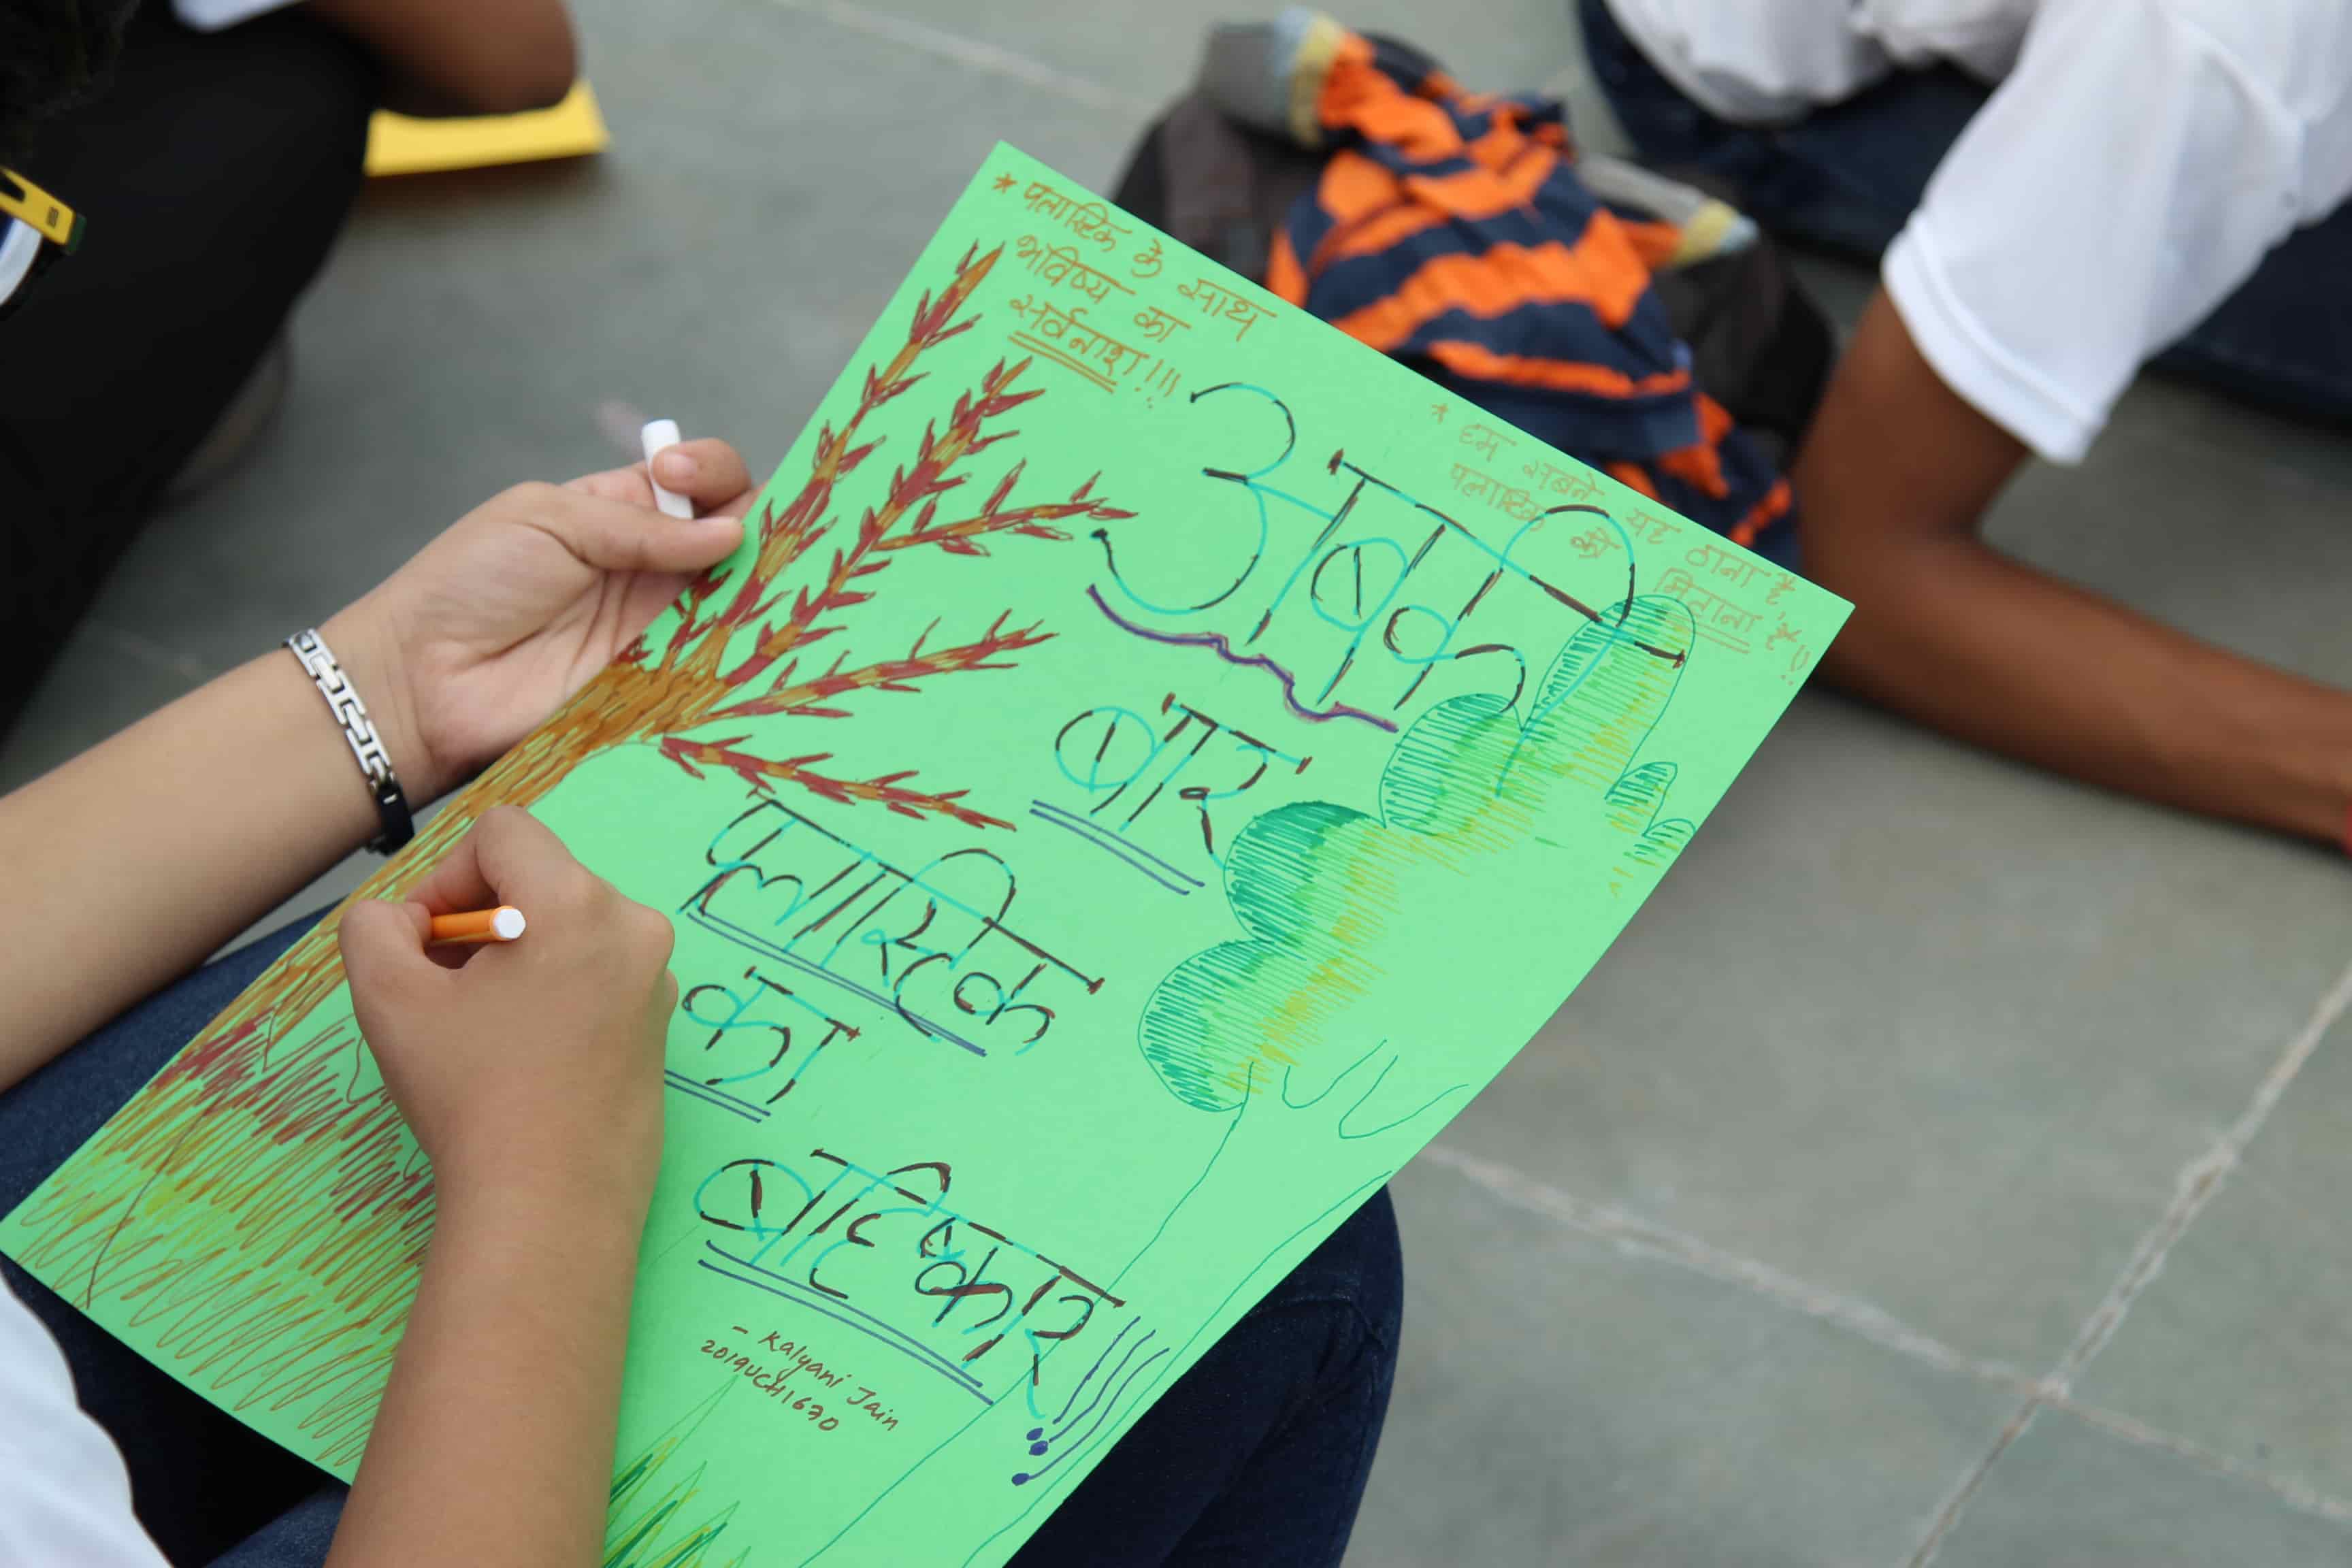 * पलास्टिक के साथ
भविष्य का
सर्वनाश!!!
* हम सबने यह ठाना है
पलास्टिक को मिटाना है!!
अबकी
बार
पलास्टिक
का
बहिष्कार!!!
- Kalyani Jain
2019UCH1630